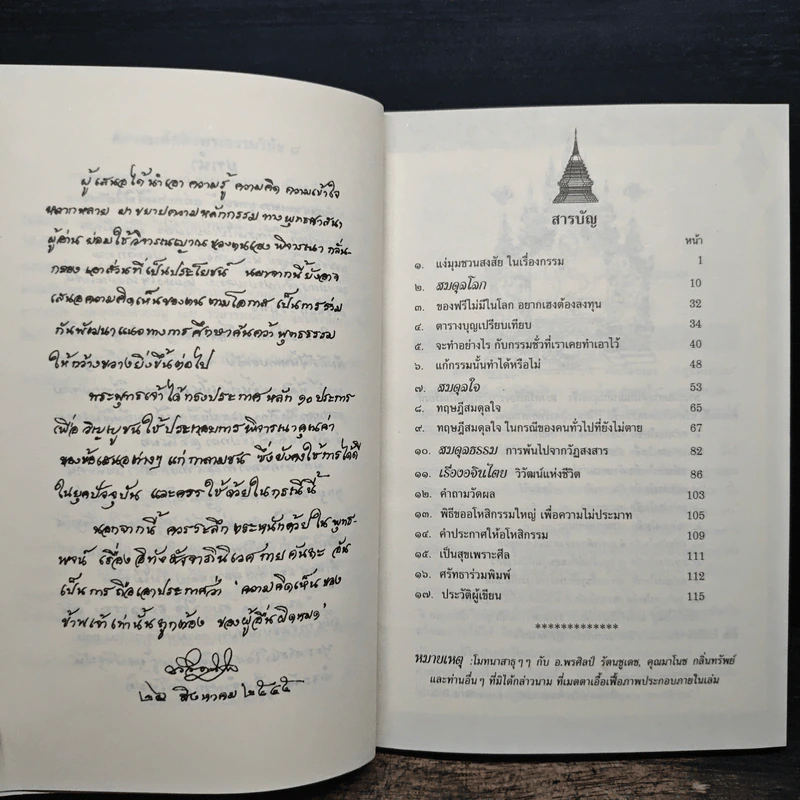 ผู้เสนอได้นำเอา ความรู้ ความคิด ความเข้าใจ
หลากหลาย มาขยายความหลักกรรม ทางพุทธศาสนา
ผู้อ่าน ย่อมใช้วิจารณญาณของตนเอง พิจารณา กลั่น-
กรอง เอาส่วนที่เป็นประโยชน์ นอกจากนี้ ยังอาจ
เสนอความคิดเห็นของตน ตามโอกาส เป็นการร่วม
กันพัฒนาแนวทางการศึกษาค้นคว้า พุทธธรรม
ให้กว้างขวางยิ่งขึ้นต่อไป
พระพุทธเจ้าได้ทรงประกาศหลัก ๑๐ ประการ
เพื่อวิญญูชนใช้ประกอบการพิจารณาคุณค่า
ของข้อเสนอต่างๆ แก่กาลามชน ซึ่งยังคงใช้การได้ดี
ในยุคปัจจุบัน และควรใช้ด้วยในกรณีนี้
นอกจากนี้ ควรระลึกตระหนักด้วยในพุทธ-
พจน์ เรื่อง อิทังสัจจาภินิเวศกายคันถะ อัน
เป็นการถือเอาประกาศว่า 'ความคิดเห็นของ
ข้าพเจ้าเท่านั้นถูกต้อง ของผู้อื่นผิดหมด'
๒๖ สิงหาคม ๒๕๔๕
สารบัญ
หน้า
๑. แง่มุมชวนสงสัย ในเรื่องกรรม 1
๒. สมดุลโลก 10
๓. ของฟรีไม่มีในโลก อยากเฮงต้องลงทุน 32
๔. ตารางบุญเปรียบเทียบ 34
๕. จะทำอย่างไร กับกรรมชั่วที่เราเคยทำเอาไว้ 40
๖. แก้กรรมนั้นทำได้หรือไม่ 48
๗. สมดุลใจ 53
๘. ทฤษฎีสมดุลใจ 65
๙. ทฤษฎีสมดุลใจ ในกรณีของคนทั่วไปที่ยังไม่ตาย 67
๑๐. สมดุลธรรม การพ้นไปจากวัฏสงสาร 82
๑๑. เรื่องอจินไตย วิวัฒน์แห่งชีวิต 86
๑๒. คำถามวัดผล 103
๑๓. พิธีขออโหสิกรรมใหญ่ เพื่อความไม่ประมาท 105
๑๔. คำประกาศให้อโหสิกรรม 109
๑๕. เป็นสุขเพราะศีล 111
๑๖. ศรัทธาร่วมพิมพ์ 112
๑๗. ประวัติผู้เขียน 115
*************
หมายเหตุ :โมทนาสาธุๆๆ กับ อ.พรศิลป์ รัตนชูเดช, คุณมาโนช กลิ่นทรัพย์
และท่านอื่นๆ ที่มิได้กล่าวนาม ที่เมตตาเอื้อเฟื้อภาพประกอบภายในเล่ม